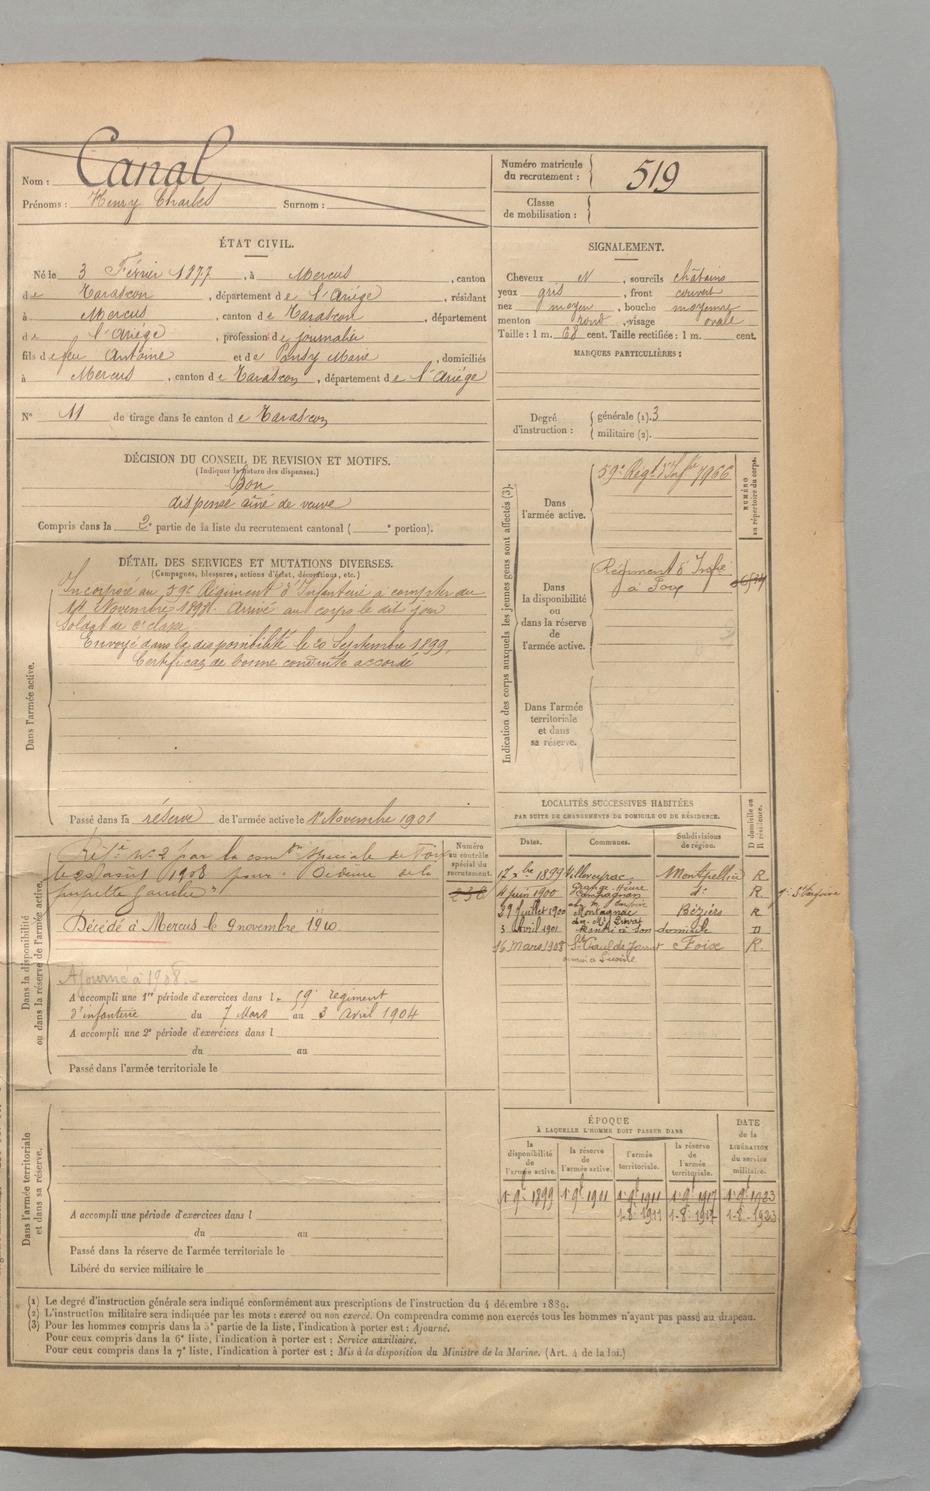 Nom : Canal
Prénoms : Henry Charles Surnom :
Numéro matricule du recrutement : 519
Classe de mobilisation :
ÉTAT CIVIL.
Né le 3 Février 1877, à Mercus, canton
de Tarascon, département de l'Ariège, résidant
à Mercus, canton de Tarascon, département
de l'Ariège, profession de journalier
fils de feu Antoine et de Pansy Marie, domiciliés
à Mercus, canton de Tarascon, département de l'Ariège
N° 11 de tirage dans le canton de Tarascon
SIGNALEMENT.
Cheveux N, sourcils châtains
yeux gris, front couvert
nez moyen, bouche moyenne
menton rond, visage ovale
Taille : 1 m. 68 cent. Taille rectifiée : 1 m. cent.
MARQUES PARTICULIÈRES :
Degré d'instruction : générale (1). 3
militaire (2).
DÉCISION DU CONSEIL DE REVISION ET MOTIFS.
(Indiquer la nature des dispenses.)
Bon
dispensé aîné de veuve
Compris dans la 2e partie de la liste du recrutement cantonal ( e portion).
DÉTAIL DES SERVICES ET MUTATIONS DIVERSES.
(Campagnes, blessures, actions d'éclat, décorations, etc.)
Dans l'armée active.
Incorporé au 59e Régiment d'Infanterie à compter du
14 Novembre 1898. Arrivé au corps le dit jour
Soldat de 2e classe.
Envoyé dans la disponibilité le 20 Septembre 1899.
Certificat de bonne conduite accordé
Passé dans la réserve de l'armée active le 1er Novembre 1901
Indication des corps auxquels les jeunes gens sont affectés (3).
NUMÉRO au répertoire du corps.
Dans l'armée active.
59e Régt d'Infie 7966
Dans la disponibilité ou dans la réserve de l'armée active.
Régiment d'Infie
à Foix
Dans l'armée territoriale et dans sa réserve.
Dans la disponibilité
ou dans la réserve de l'armée active.
Numéro au contrôle spécial du recrutement.
Réfé n° 2 par la comon spéciale de Foix
le 28 août 1908 pour
pupille gauche"
Décédé à Mercus le 9 novembre 1910.
Ajourné à 1908.
A accompli une 1re période d'exercices dans le 59e régiment
d'infanterie du 7 Mars au 3 avril 1904
A accompli une 2e période d'exercices dans l
du au
Passé dans l'armée territoriale le
LOCALITÉS SUCCESSIVES HABITÉES
PAR SUITE DE CHANGEMENTS DE DOMICILE OU DE RÉSIDENCE.
Dates. Communes. Subdivisions de région. D domicile ou R résidence.
17 xbre 1899 Villeveyrac Montpellier R
4 juin 1900 do R
29 Juillet 1900 Montagnac Béziers R
3 Avril 1901 Rentré à son domicile D
16 Mars 1908 St Paul de Jarrat Foix R.
Dans l'armée territoriale
et dans sa réserve.
A accompli une période d'exercices dans l
du au
Passé dans la réserve de l'armée territoriale le
Libéré du service militaire le
ÉPOQUE
À LAQUELLE L'HOMME DOIT PASSER DANS
DATE de la LIBÉRATION du service militaire.
la disponibilité de l'armée active.
la réserve de l'armée active.
l'armée territoriale.
la réserve de l'armée territoriale.
1 9bre 1899 1 9bre 1911 1 9bre 1911 1 9bre 1917 1 9bre 1923
1-8-1911 1-8-1917 1-8-1923
(1) Le degré d'instruction générale sera indiqué conformément aux prescriptions de l'instruction du 4 décembre 1889.
(2) L'instruction militaire sera indiquée par les mots : exercé ou non exercé. On comprendra comme non exercés tous les hommes n'ayant pas passé au drapeau.
(3) Pour les hommes compris dans la 5e partie de la liste, l'indication à porter est : Ajourné.
Pour ceux compris dans la 6e liste, l'indication à porter est : Service auxiliaire.
Pour ceux compris dans la 7e liste, l'indication à porter est : Mis à la disposition du Ministre de la Marine. (Art. 4 de la loi.)